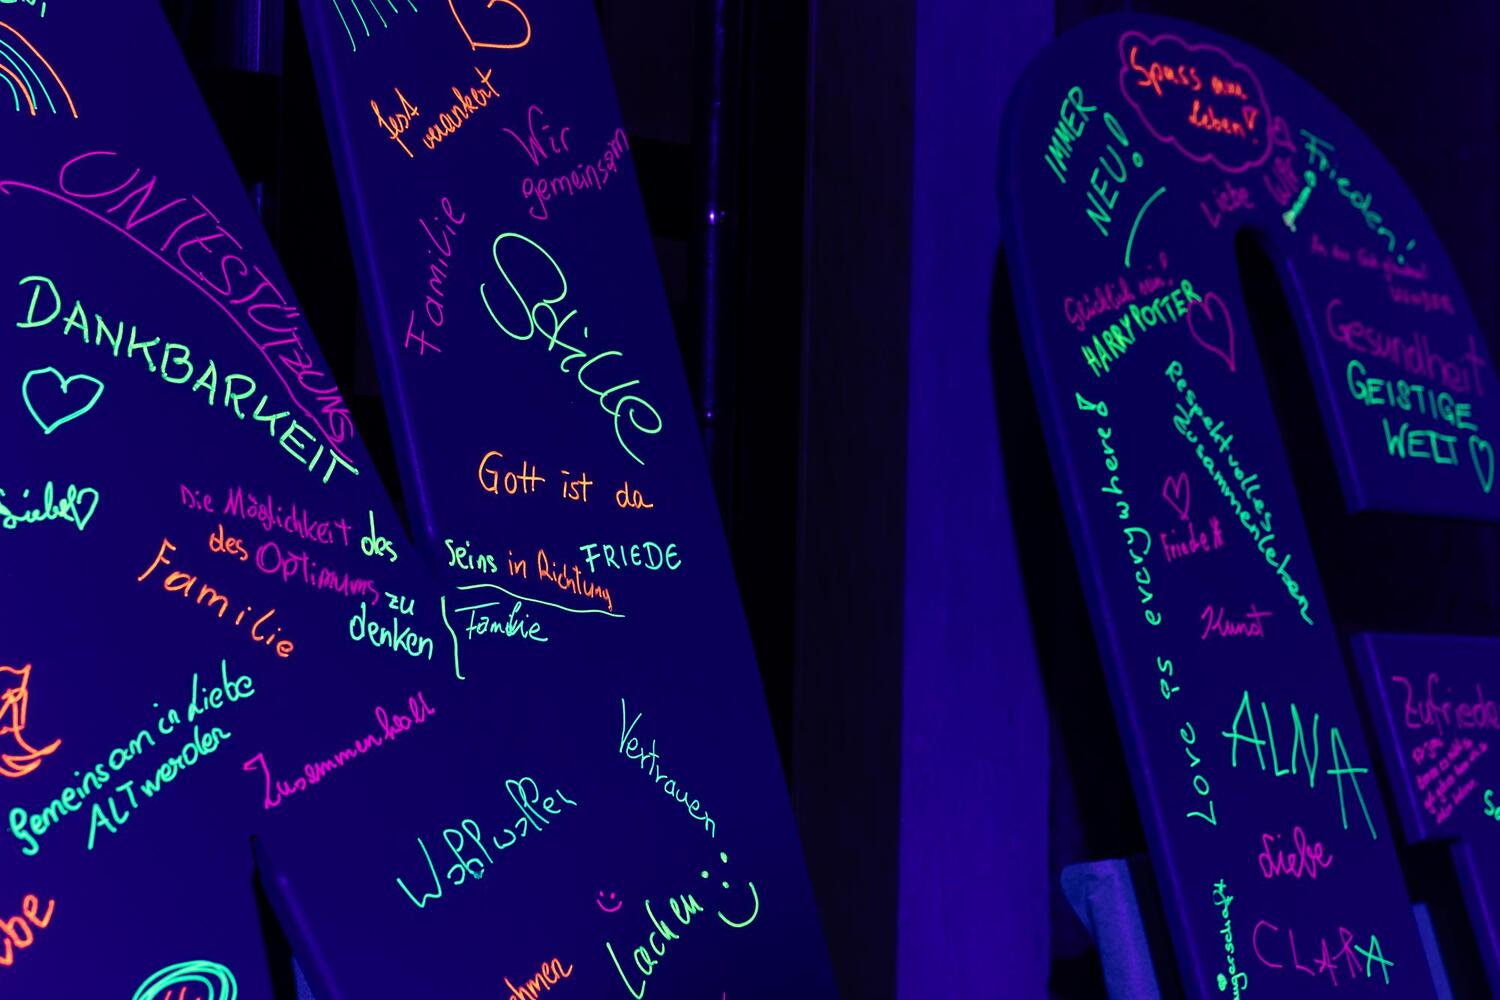 UNTESTÜTZUNG
DANKBARKEIT
Liebe
Die Möglichkeit des
des Optimums zu
denken
Familie
gemeinsam in Liebe
ALT werden
Zusammenhalt
fest
verankert
Wir
gemeinsam
Familie
Stille
Gott ist da
Seins in Richtung
FRIEDE
Familie
Vertrauen
Wohlwollen
Lachen
Spass am
Leben!
IMMER
NEU!
Liebe
WIR
Frieden!
Glücklich sein!
HARRY POTTER
Gesundheit
GEISTIGE
WELT
Respektvolles
Zusammenleben
Love is everywhere!
Friede
Kunst
ALNA
Liebe
CLARA